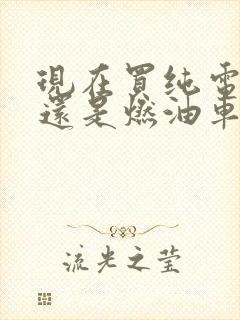 現在買纯電
還是燃油車
流光之莹